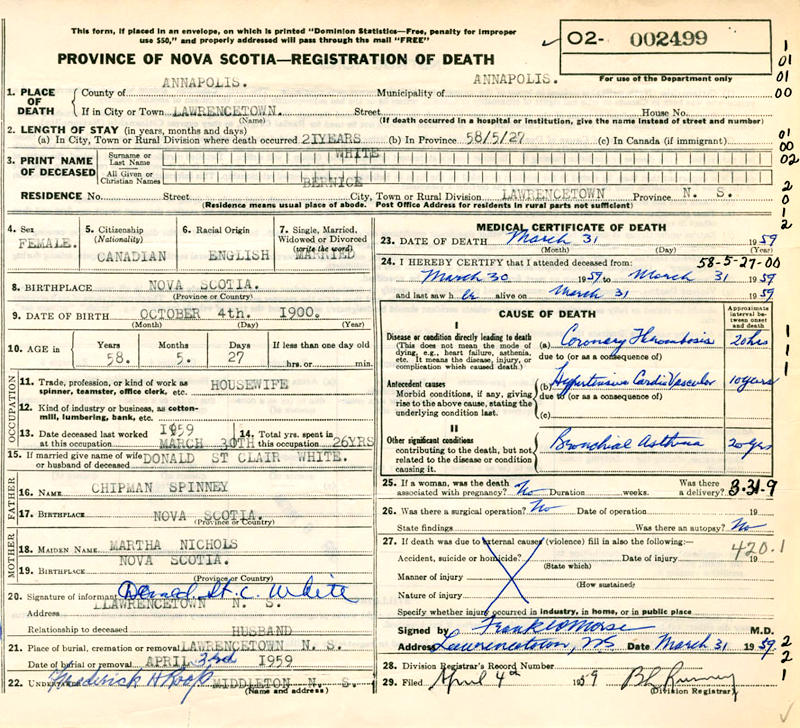 This form, if placed in an envelope, on which is printed "Dominion Statistics—Free, penalty for improper
use $50," and properly addressed will pass through the mail "FREE"
02- 002499
For use of the Department only
PROVINCE OF NOVA SCOTIA—REGISTRATION OF DEATH
1. PLACE OF DEATH County of ANNAPOLIS. Municipality of ANNAPOLIS.
If in City or Town LAWRENCETOWN. Street House No.
(Name) (If death occurred in a hospital or institution, give the name instead of street and number)
2. LENGTH OF STAY (in years, months and days)
(a) In City, Town or Rural Division where death occurred 21YEARS (b) In Province 58/5/27 (c) In Canada (if immigrant)
3. PRINT NAME OF DECEASED Surname or Last Name WHITE
All Given or Christian Names BERNICE
RESIDENCE No. Street City, Town or Rural Division LAWRENCETOWN Province N. S.
(Residence means usual place of abode. Post Office Address for residents in rural parts not sufficient)
4. Sex FEMALE.
5. Citizenship (Nationality) CANADIAN
6. Racial Origin ENGLISH
7. Single, Married, Widowed or Divorced (write the word) MARRIED
8. BIRTHPLACE NOVA SCOTIA.
(Province or Country)
9. DATE OF BIRTH OCTOBER 4th. 1900.
(Month) (Day) (Year)
10. AGE in Years 58. Months 5. Days 27 If less than one day old
hrs. or min.
OCCUPATION
11. Trade, profession, or kind of work as spinner, teamster, office clerk, etc. HOUSEWIFE
12. Kind of industry or business, as cotton-mill, lumbering, bank, etc.
13. Date deceased last worked at this occupation 1959 MARCH 30TH
14. Total yrs. spent in this occupation 26YRS
15. If married give name of wife or husband of deceased DONALD ST CLAIR WHITE.
FATHER
16. Name CHIPMAN SPINNEY
17. Birthplace NOVA SCOTIA.
(Province or Country)
MOTHER
18. Maiden Name MARTHA NICHOLS
19. Birthplace NOVA SCOTIA.
(Province or Country)
20. Signature of informant Donald St. C. White
Address LLAWRENCETOWN N. S.
Relationship to deceased HUSBAND
21. Place of burial, cremation or removal LAWRENCETOWN N. S.
Date of burial or removal APRIL 3rd 1959
22. Undertaker MIDDLETON N. S.
(Name and address)
MEDICAL CERTIFICATE OF DEATH
23. DATE OF DEATH March 31 1959
(Month) (Day) (Year)
24. I HEREBY CERTIFY that I attended deceased from: 58-5-27-00
March 30 1959 to March 31 1959
and last saw h er alive on March 31 1959
CAUSE OF DEATH
Approximate interval between onset and death
I
Disease or condition directly leading to death
(This does not mean the mode of dying, e.g., heart failure, asthenia, etc. It means the disease, injury, or complication which caused death.)
(a) Coronary Thrombosis 20 hrs
due to (or as a consequence of)
Antecedent causes
Morbid conditions, if any, giving rise to the above cause, stating the underlying condition last.
(b) Hypertensive CardioVascular 10 years
due to (or as a consequence of)
(c)
II
Other significant conditions
contributing to the death, but not related to the disease or condition causing it.
Bronchial Asthma 20 yrs
25. If a woman, was the death associated with pregnancy? No Duration weeks. Was there a delivery? 3-31-9
26. Was there a surgical operation? No Date of operation 19
State findings Was there an autopsy? No
27. If death was due to external causes (violence) fill in also the following: 420.1
Accident, suicide or homicide? Date of injury 19
(State which)
Manner of injury
(How sustained)
Nature of injury
Specify whether injury occurred in industry, in home, or in public place
Signed by Frank W Morse M.D.
Address Lawrencetown, NS Date March 31 1959
28. Division Registrar's Record Number
29. Filed April 4th 1959
(Division Registrar)